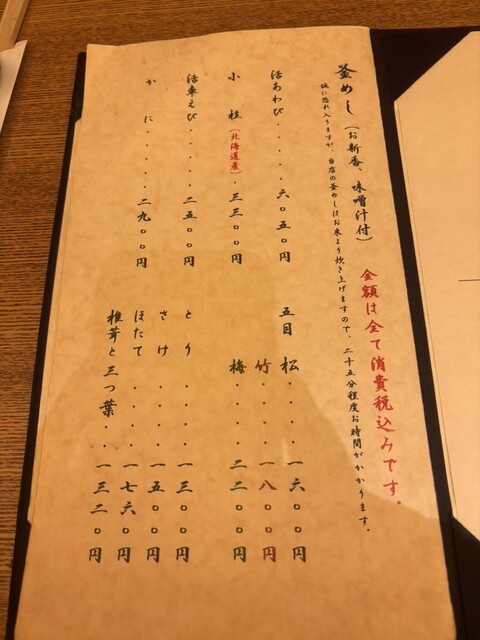 釜めし(お新香、味噌汁付)
金額は全て消費税込みです。
誠に恐れ入りますが、当店の釜めしはお米より炊き上げますので、二十五分程度お時間がかかります。
活あわび・・・・六〇五〇円
小柱(北海道産)・三三〇〇円
活車えび・・・・二五〇〇円
かに・・・・・二九〇〇円
五目 松・・・・一六〇〇円
竹・・・・一八〇〇円
梅・・・・二二〇〇円
とり・・・・・一三〇〇円
さけ・・・・・一五〇〇円
ほたて・・・・一七六〇円
椎茸と三つ葉・・一三二〇円